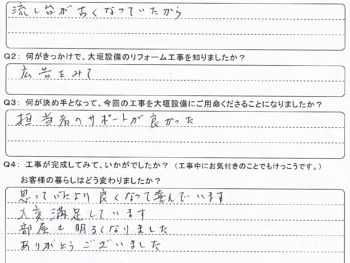 流し台が古くなっていたから
Q2：何がきっかけで、大垣設備のリフォーム工事を知りましたか？
広告をみて
Q3：何が決め手となって、今回の工事を大垣設備にご用命くださることになりましたか？
担当者のサポートが良かった
Q4：工事が完成してみて、いかがでしたか？（工事中にお気付きのことでもけっこうです。）
お客様の暮らしはどう変わりましたか？
思っていたより良くなって喜んでいます
大変満足しています
部屋も明るくなりました
ありがとうございました